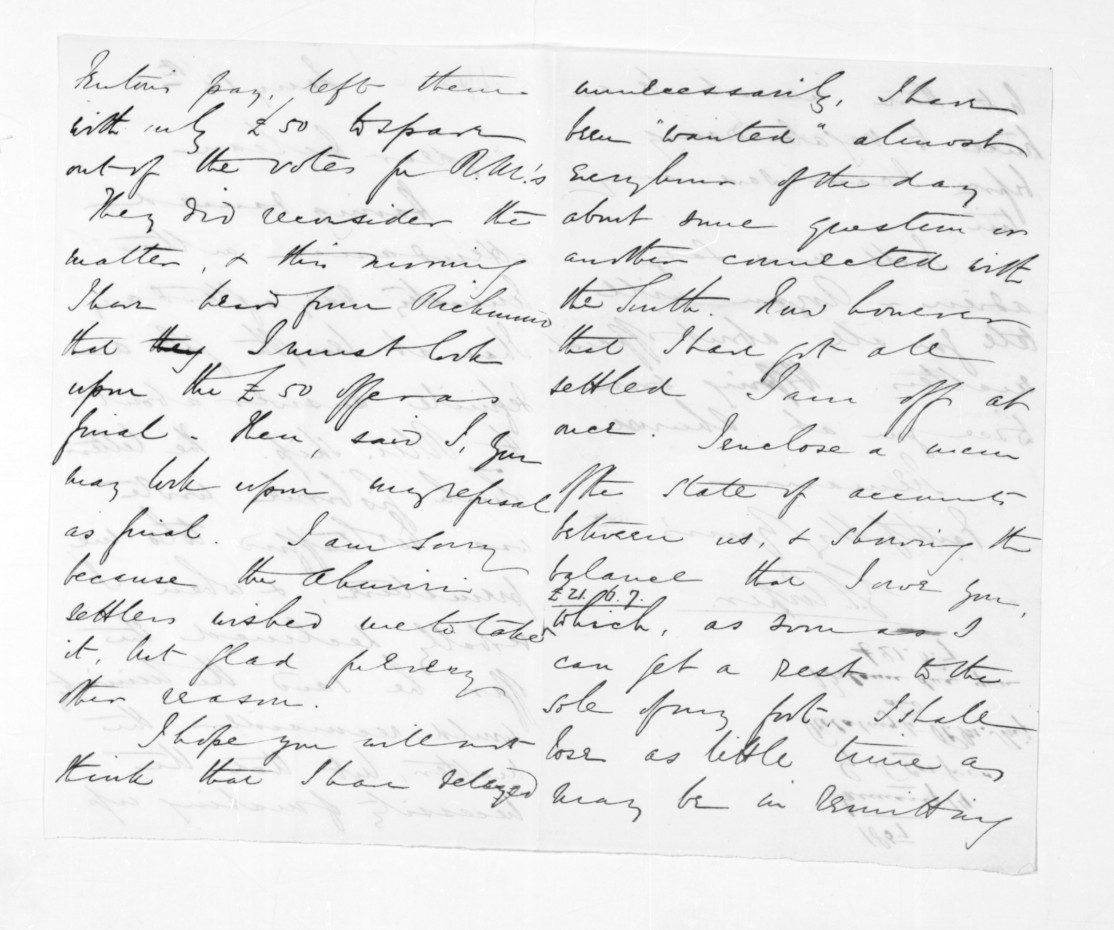 Fenton's pay, left them
with only £50 to spare
out of the votes for R.M.'s
They did reconsider the
matter, & this morning
I have heard from Richmond
that they I must look
upon the £50 offer as
final - then, said I, you
may look upon my refusal
as final. I am sorry
because the Ahuriri
settlers wished me to take
it, but glad for every
other reason.
I hope you will not
think that I have delayed
unnecessarily, I have
been "wanted" almost
every hour of the day
about some question or
another connected with
the South. Now however
that I have got all
settled I am off at
once. I enclose a mem
of the state of accounts
between us, & showing the
balance that I owe you,
£21. 6. 7.
which, as soon as I
can get a rest to the
sole of my foot I shall
lose as little time as
may be in remitting